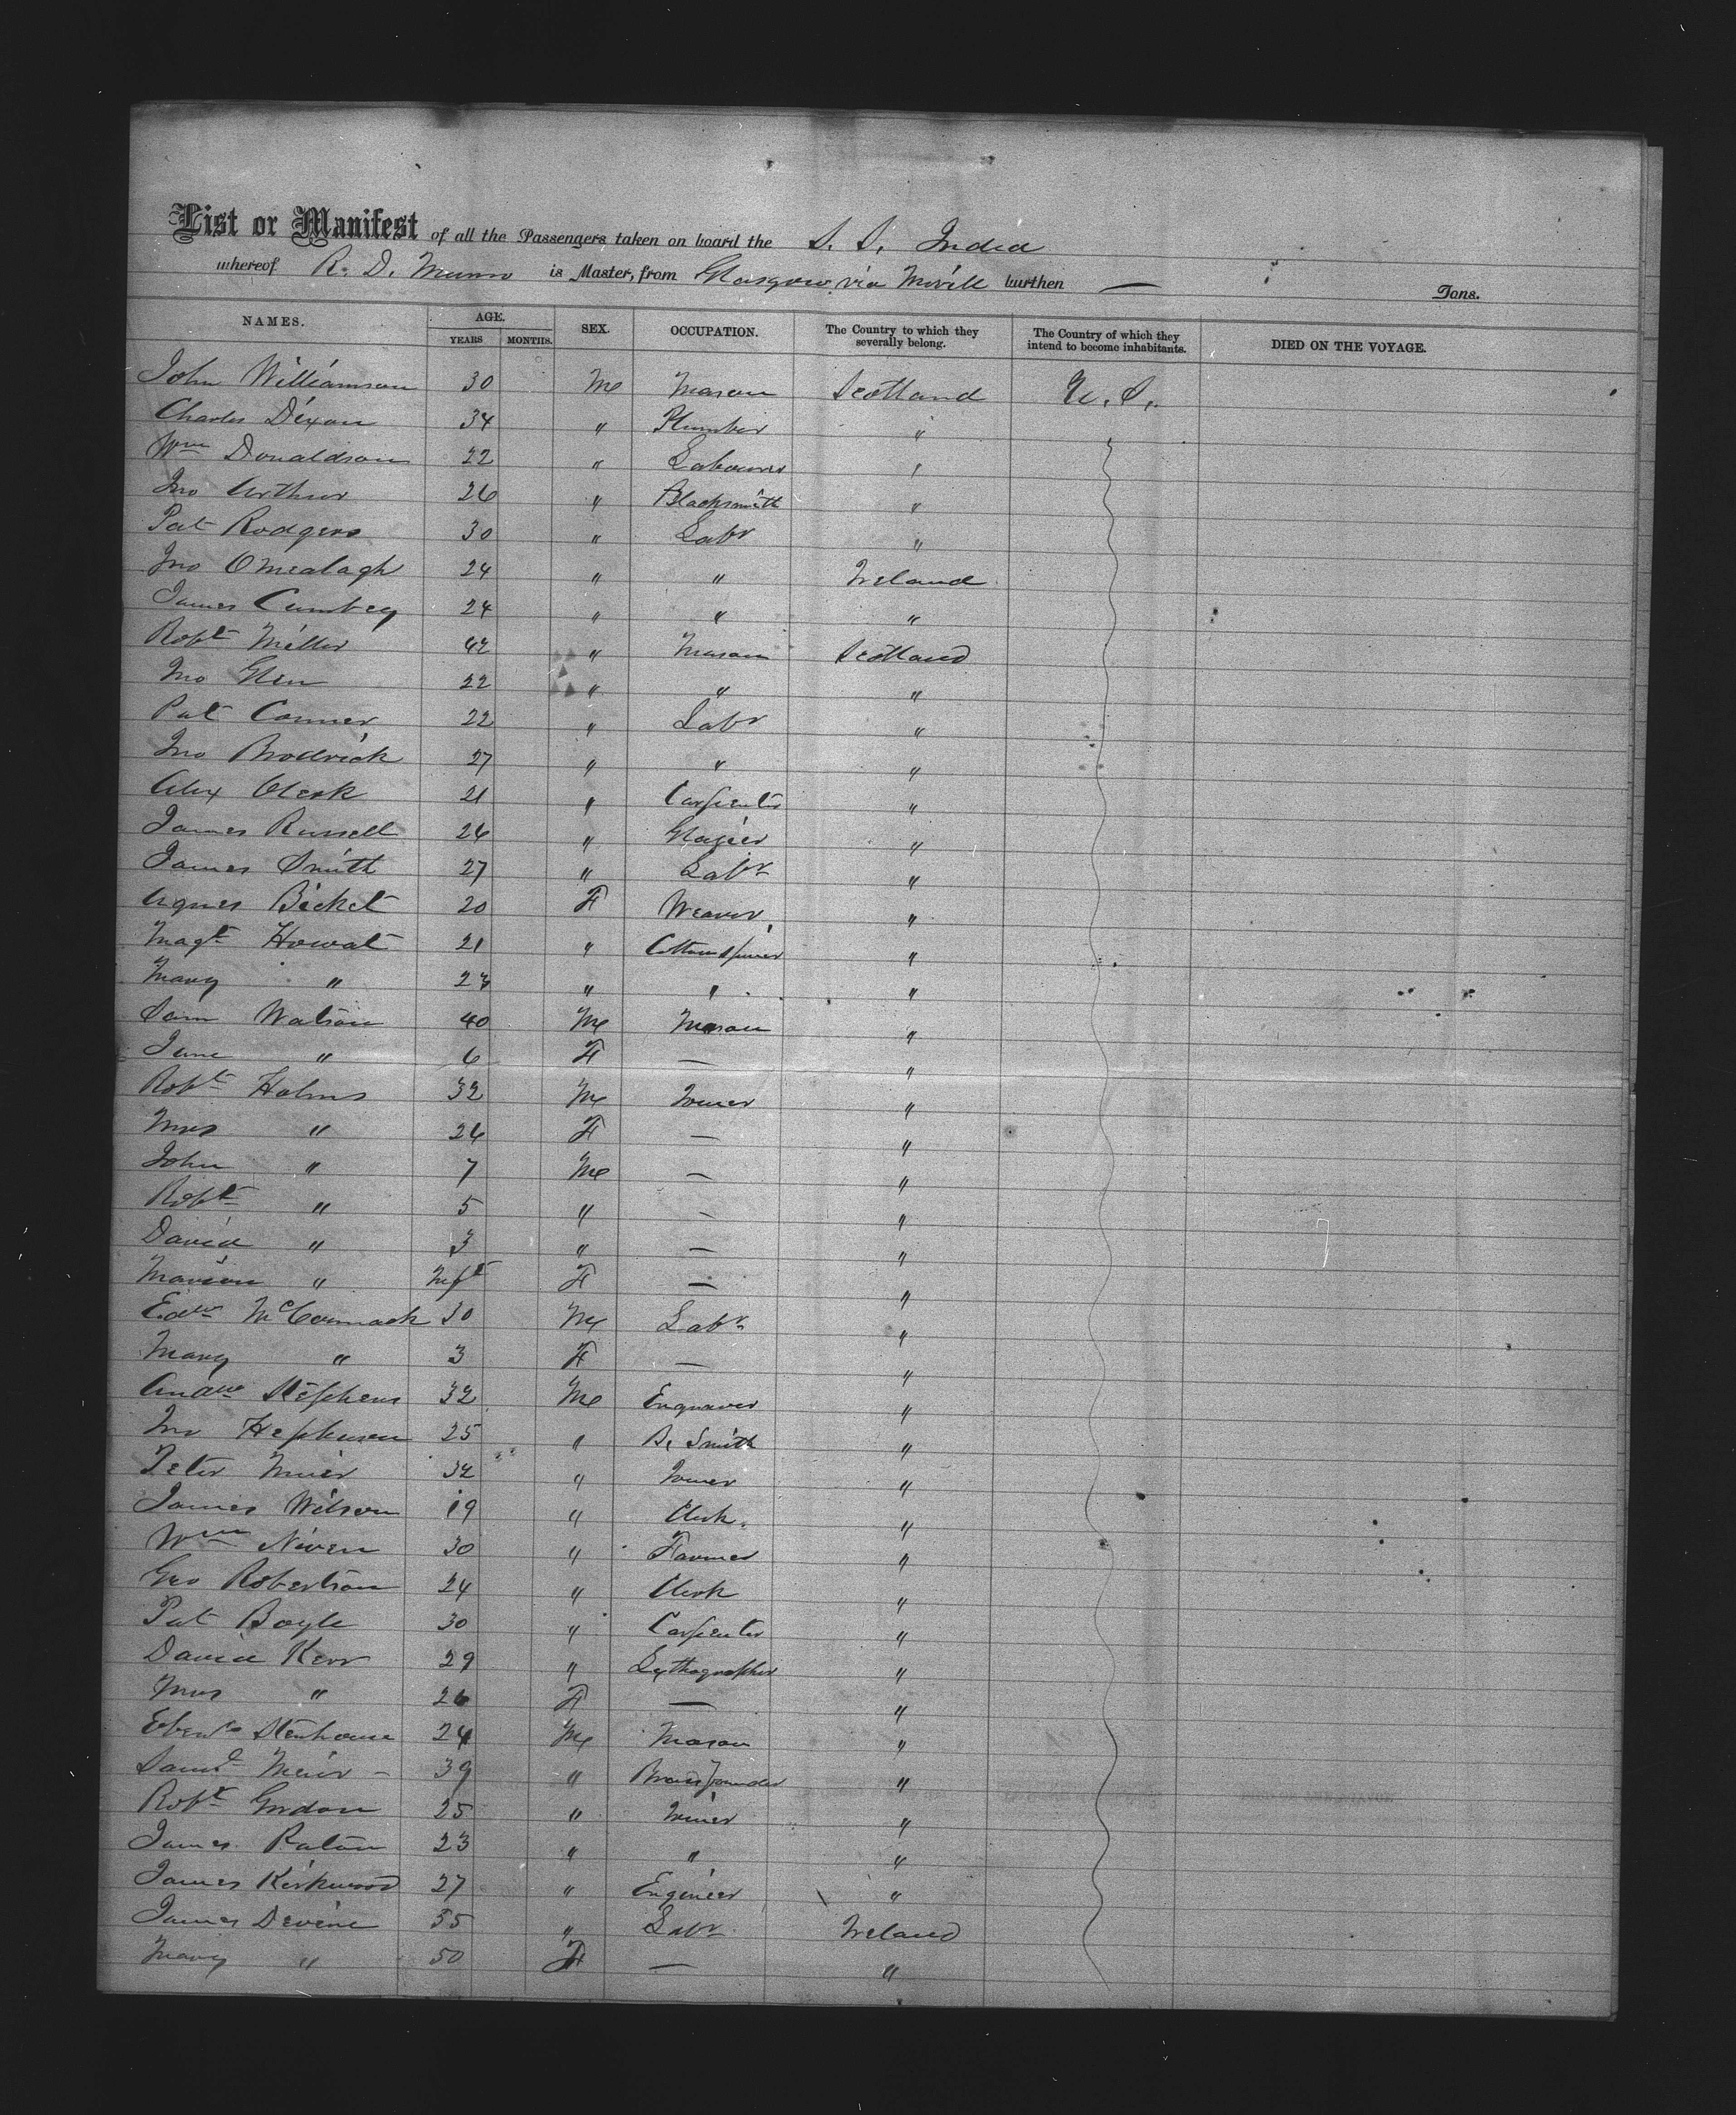 List or Manifest of all the Passengers taken on board the S. S. India
whereof R. D. Munro is Master, from Glasgow via Moville burthen — Tons.
NAMES. AGE. YEARS MONTHS. SEX. OCCUPATION. The Country to which they severally belong. The Country of which they intend to become inhabitants. DIED ON THE VOYAGE.
John Williamson 30 M Mason Scotland U. S.
Charles Dixon 34 " Plumber "
Wm Donaldson 22 " Labourer "
Jno Arthur 26 " Blacksmith "
Pat Rodgers 30 " Labr "
Jno Omealagh 24 " " Ireland
James Cumbey 24 " " "
Robt Miller 42 " Mason Scotland
Jno Glen 22 " " "
Pat Conner 22 " Labr "
Jno Brodrick 27 " " "
Alex Clerk 21 " Carpenter "
James Russell 26 " Glazier "
James Smith 27 " Labr "
Agnes Bicket 20 F Weaver "
Magt Howat 21 " Cottonspiner "
Mary " 23 " " "
Sam Watson 40 M Mason "
Jane " 6 F — "
Robt Holms 32 M Joiner "
Mrs " 26 F — "
John " 7 M — "
Robt " 5 " — "
David " 3 " — "
Marion " Inft F — "
Edw McCormack 30 M Labr "
Mary " 3 F — "
Andw Stephens 32 M Engraver "
Jno Hepburn 25 " Bl Smith "
Peter Muir 32 " Joiner "
James Wilson 19 " Clerk. "
Wm Niven 30 " Farmer "
Geo Robertson 24 " Clerk "
Pat Boyle 30 " Carpenter "
David Kerr 29 " Lythographer "
Mrs " 26 F — "
Ebenr Stenhouse 24 M Mason "
Saml Meir 39 " Brassfounder "
Robt Gordon 25 " Joiner "
James Paton 23 " " "
James Kirkwood 27 " Engineer "
James Devine 55 " Labr Ireland
Mary " 50 F — "